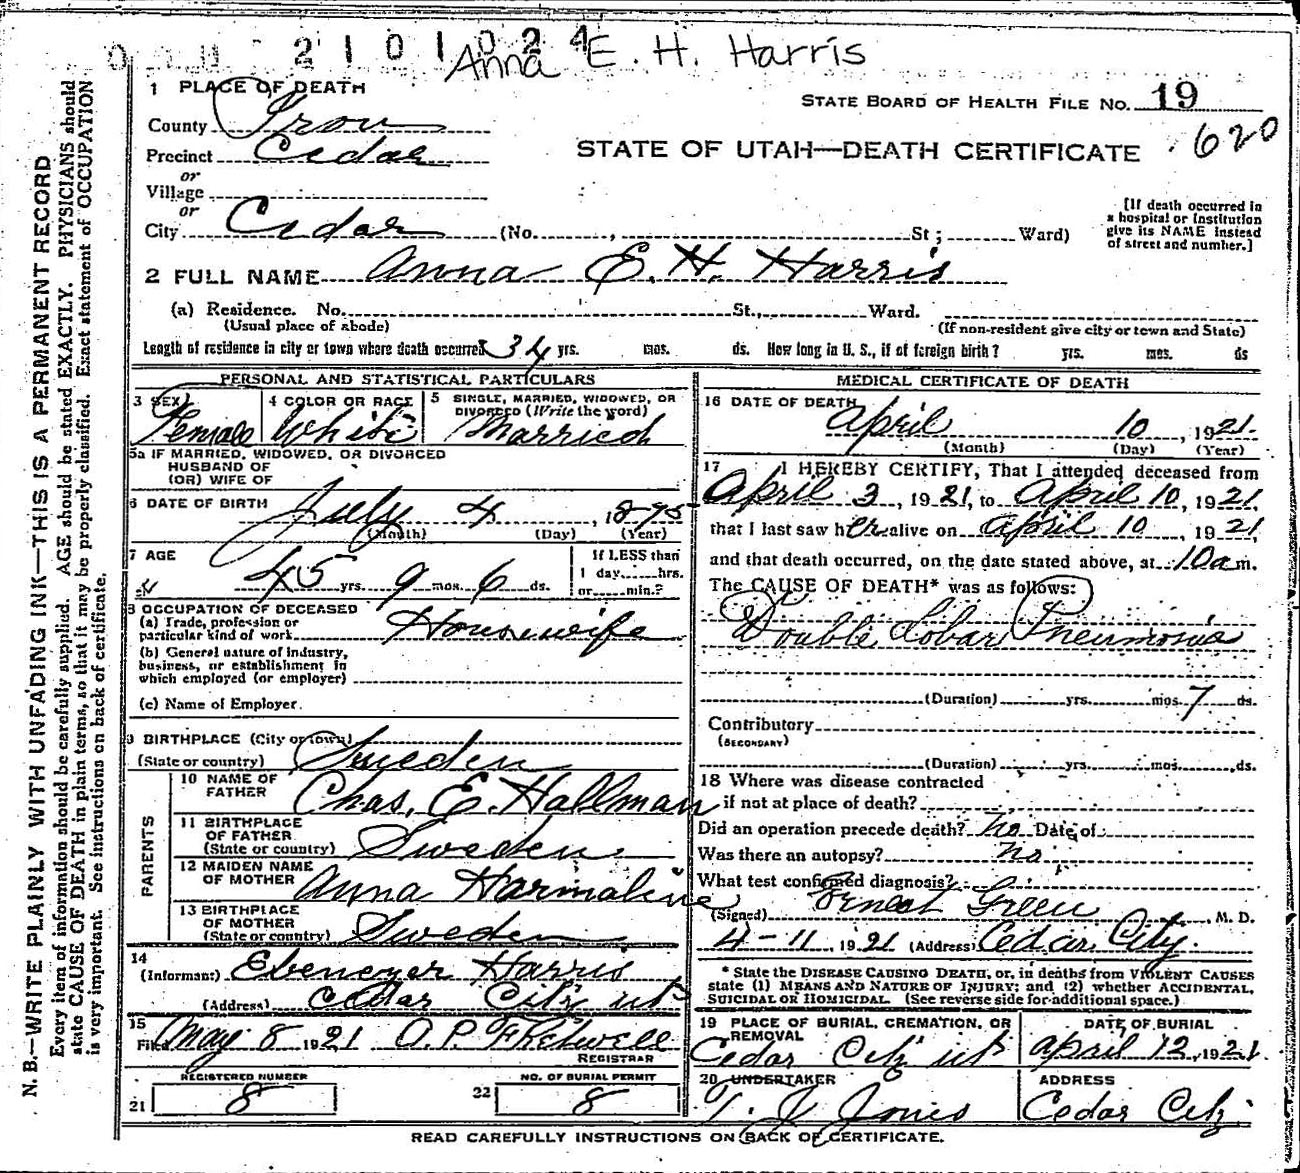 2101024
Anna E. H. Harris
1 PLACE OF DEATH
STATE BOARD OF HEALTH FILE NO. 19
County Iron
620
Precinct Cedar
STATE OF UTAH—DEATH CERTIFICATE
or
Village
or
City Cedar (No. , St ; Ward)
[If death occurred in
a hospital or institution
give its NAME instead
of street and number.]
2 FULL NAME Anna E. H. Harris
(a) Residence. No. St., Ward.
(Usual place of abode) (If non-resident give city or town and State)
Length of residence in city or town where death occurred 34 yrs. mos. ds. How long in U. S., if of foreign birth? yrs. mos. ds
PERSONAL AND STATISTICAL PARTICULARS
3 SEX Female
4 COLOR OR RACE White
5 SINGLE, MARRIED, WIDOWED, OR
DIVORCED (Write the word)
Married
5a IF MARRIED, WIDOWED, OR DIVORCED
HUSBAND OF
(OR) WIFE OF
6 DATE OF BIRTH July 4, 1875
(Month) (Day) (Year)
7 AGE 45 yrs. 9 mos. 6 ds.
If LESS than
1 day hrs.
or min.?
8 OCCUPATION OF DECEASED
(a) Trade, profession or
particular kind of work Housewife
(b) General nature of industry,
business, or establishment in
which employed (or employer)
(c) Name of Employer
9 BIRTHPLACE (City or town)
(State or country) Sweden
PARENTS
10 NAME OF
FATHER Chas. E. Hallman
11 BIRTHPLACE
OF FATHER
(State or country) Sweden
12 MAIDEN NAME
OF MOTHER Anna Harmaline
13 BIRTHPLACE
OF MOTHER
(State or country) Sweden
14
(Informant) Ebenezer Harris
(Address) Cedar City ut
15
Filed May 8 1921 O. P. Fretwell
REGISTRAR
REGISTERED NUMBER
21 8
NO. OF BURIAL PERMIT
22 8
MEDICAL CERTIFICATE OF DEATH
16 DATE OF DEATH
April 10, 1921.
(Month) (Day) (Year)
17 I HEREBY CERTIFY, That I attended deceased from
April 3, 1921, to April 10, 1921,
that I last saw her alive on April 10, 1921
and that death occurred, on the date stated above, at 10 a m.
The CAUSE OF DEATH* was as follows:
Double Lobar Pneumonia
(Duration) yrs. mos. 7 ds.
Contributory
(SECONDARY)
(Duration) yrs. mos. ds.
18 Where was disease contracted
if not at place of death?
Did an operation precede death? No Date of
Was there an autopsy? No
What test confirmed diagnosis?
(Signed) Ernest Green, M. D.
4-11, 1921 (Address) Cedar City.
* State the DISEASE CAUSING DEATH, or, in deaths from VIOLENT CAUSES
state (1) MEANS AND NATURE OF INJURY; and (2) whether ACCIDENTAL,
SUICIDAL OR HOMICIDAL. (See reverse side for additional space.)
19 PLACE OF BURIAL, CREMATION, OR
REMOVAL
Cedar City ut
DATE OF BURIAL
April 12, 1921.
20 UNDERTAKER
T. J. Jones
ADDRESS
Cedar City
READ CAREFULLY INSTRUCTIONS ON BACK OF CERTIFICATE.
N. B.—WRITE PLAINLY WITH UNFADING INK—THIS IS A PERMANENT RECORD
Every item of information should be carefully supplied. AGE should be stated EXACTLY. PHYSICIANS should
state CAUSE OF DEATH in plain terms, so that it may be properly classified. Exact statement of OCCUPATION
is very important. See instructions on back of certificate.